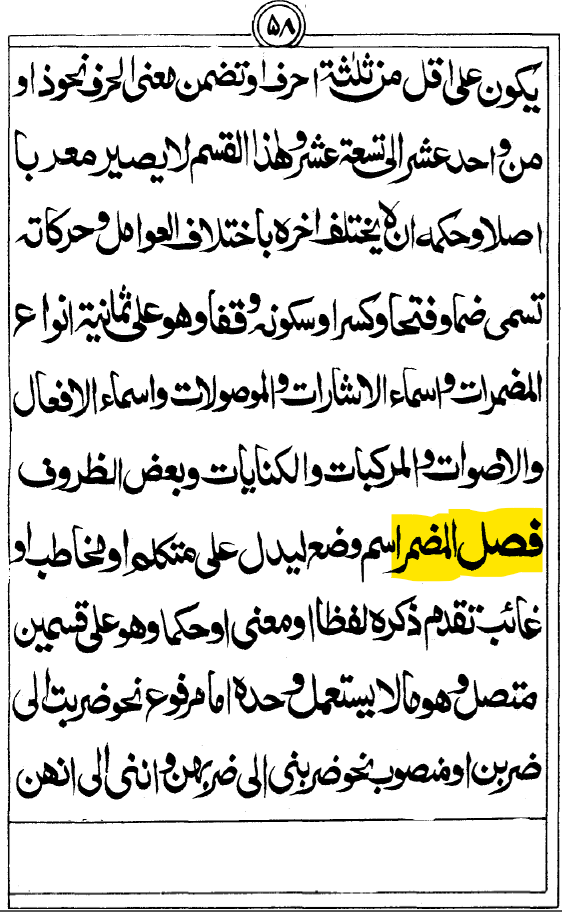 ۵۸
يكون على اقل من ثلثة احرف او تضمن معنى الحرف نحو ذا و
من واحد عشر الى تسعة عشر وهذا القسم لا يصير معربا
اصلا وحكمه ان لا يختلف اخره باختلاف العوامل وحركاته
تسمى ضما وفتحا وكسرا وسكونه وقفا وهو على ثمانية انواع
المضمرات واسماء الاشارات والموصولات واسماء الافعال
والاصوات والمركبات والكنايات وبعض الظروف
فصل المضمر اسم وضع ليدل على متكلم او مخاطب او
غائب تقدم ذكره لفظا او معنى او حكما وهو على قسمين
متصل وهو ما لا يستعمل وحده اما مرفوع نحو ضربت الى
ضربن او منصوب نحو ضربنى الى ضربهن واننى الى انهن